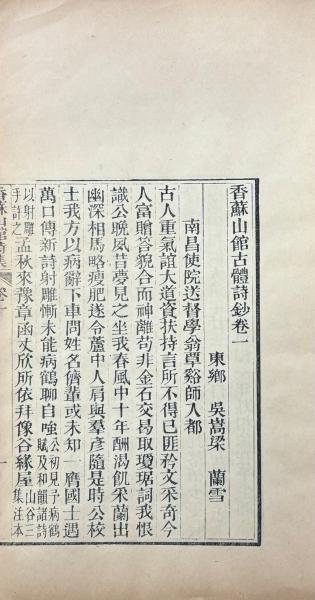 香蘇山館古體詩鈔卷一
東鄉 吳嵩梁 蘭雪
南昌使院送督學翁覃谿師入都
古人重氣誼大道資扶持言所不得已匪矜文采奇今
人富贈答貌合而神離苟非金石交易取瓊琚詞我恨
識公晚夙昔夢見之坐我春風中十年酬渴飢采蘭出
幽深相馬略瘦肥遂令蘆中人肩與羣彥隨是時公校
士我方以病辭下車問姓名儕輩或未知一膺國士遇
萬口傳新詩射雕慚未能病鶴聊自強公初見予病鶴賦及和韻諸詩
以射雕手詩之孟秋來豫章函丈欣所依拜像谷緣屋山谷三集注本
香蘇山館詩集 卷一 一